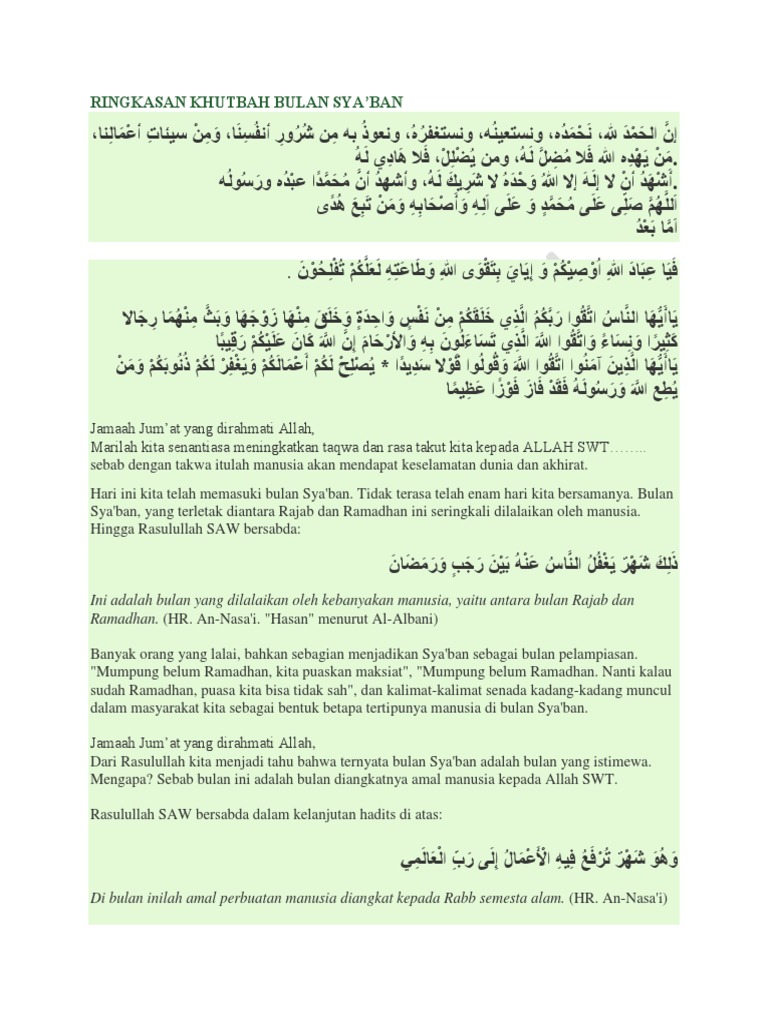 RINGKASAN KHUTBAH BULAN SYA’BAN
إنَّ الحَمْدَ لله، نَحْمَدُه، ونستعينُه، ونستغفرُهُ، ونعوذُ به مِن شُرُورِ أنفُسِنَا، وَمِنْ سيئاتِ أعْمَالِنا،
.مَنْ يَهْدِه الله فَلا مُضِلَّ لَهُ، ومن يُضْلِلْ، فَلا هَادِي لَهُ
.أَشْهَدُ أنْ لا إلَهَ إلا اللهُ وَحْدَهُ لا شَرِيكَ لَهُ، وأشهدُ أنَّ مُحَمَّدًا عبْدُه ورَسُولُه
اَللَّهُمَّ صَلِّى عَلَى مُحَمَّدٍ وَ عَلَى اَلِهِ وَأَصْحَابِهِ وَمَنْ تَبِعَ هُدًى
اَمَّا بَعْدُ
فَيَا عِبَادَ اللهِ اُوْصِيْكُمْ وَ إِيَايَ بِتَقْوَى اللهِ وَطَاعَتِهِ لَعَلَّكُمْ تُفْلِحُوْنَ .
يَاأَيُّهَا النَّاسُ اتَّقُوا رَبَّكُمُ الَّذِي خَلَقَكُمْ مِنْ نَفْسٍ وَاحِدَةٍ وَخَلَقَ مِنْهَا زَوْجَهَا وَبَثَّ مِنْهُمَا رِجَالا
كَثِيرًا وَنِسَاءً وَاتَّقُوا اللهَ الَّذِي تَسَاءَلُونَ بِهِ وَالأرْحَامَ إِنَّ اللَّهَ كَانَ عَلَيْكُمْ رَقِيبًا
يَاأَيُّهَا الَّذِينَ آمَنُوا اتَّقُوا اللَّهَ وَقُولُوا قَوْلا سَدِيدًا * يُصْلِحْ لَكُمْ أَعْمَالَكُمْ وَيَغْفِرْ لَكُمْ ذُنُوبَكُمْ وَمَنْ
يُطِعِ اللَّهَ وَرَسُولَهُ فَقَدْ فَازَ فَوْزًا عَظِيمًا
Jamaah Jum’at yang dirahmati Allah,
Marilah kita senantiasa meningkatkan taqwa dan rasa takut kita kepada ALLAH SWT……..
sebab dengan takwa itulah manusia akan mendapat keselamatan dunia dan akhirat.
Hari ini kita telah memasuki bulan Sya'ban. Tidak terasa telah enam hari kita bersamanya. Bulan
Sya'ban, yang terletak diantara Rajab dan Ramadhan ini seringkali dilalaikan oleh manusia.
Hingga Rasulullah SAW bersabda:
ذَلِكَ شَهْرٌ يَغْفُلُ النَّاسُ عَنْهُ بَيْنَ رَجَبٍ وَرَمَضَانَ
Ini adalah bulan yang dilalaikan oleh kebanyakan manusia, yaitu antara bulan Rajab dan
Ramadhan. (HR. An-Nasa'i. "Hasan" menurut Al-Albani)
Banyak orang yang lalai, bahkan sebagian menjadikan Sya'ban sebagai bulan pelampiasan.
"Mumpung belum Ramadhan, kita puaskan maksiat", "Mumpung belum Ramadhan. Nanti kalau
sudah Ramadhan, puasa kita bisa tidak sah", dan kalimat-kalimat senada kadang-kadang muncul
dalam masyarakat kita sebagai bentuk betapa tertipunya manusia di bulan Sya'ban.
Jamaah Jum’at yang dirahmati Allah,
Dari Rasulullah kita menjadi tahu bahwa ternyata bulan Sya'ban adalah bulan yang istimewa.
Mengapa? Sebab bulan ini adalah bulan diangkatnya amal manusia kepada Allah SWT.
Rasulullah SAW bersabda dalam kelanjutan hadits di atas:
وَهُوَ شَهْرٌ تُرْفَعُ فِيهِ الْأَعْمَالُ إِلَى رَبِّ الْعَالَمِي
Di bulan inilah amal perbuatan manusia diangkat kepada Rabb semesta alam. (HR. An-Nasa'i)